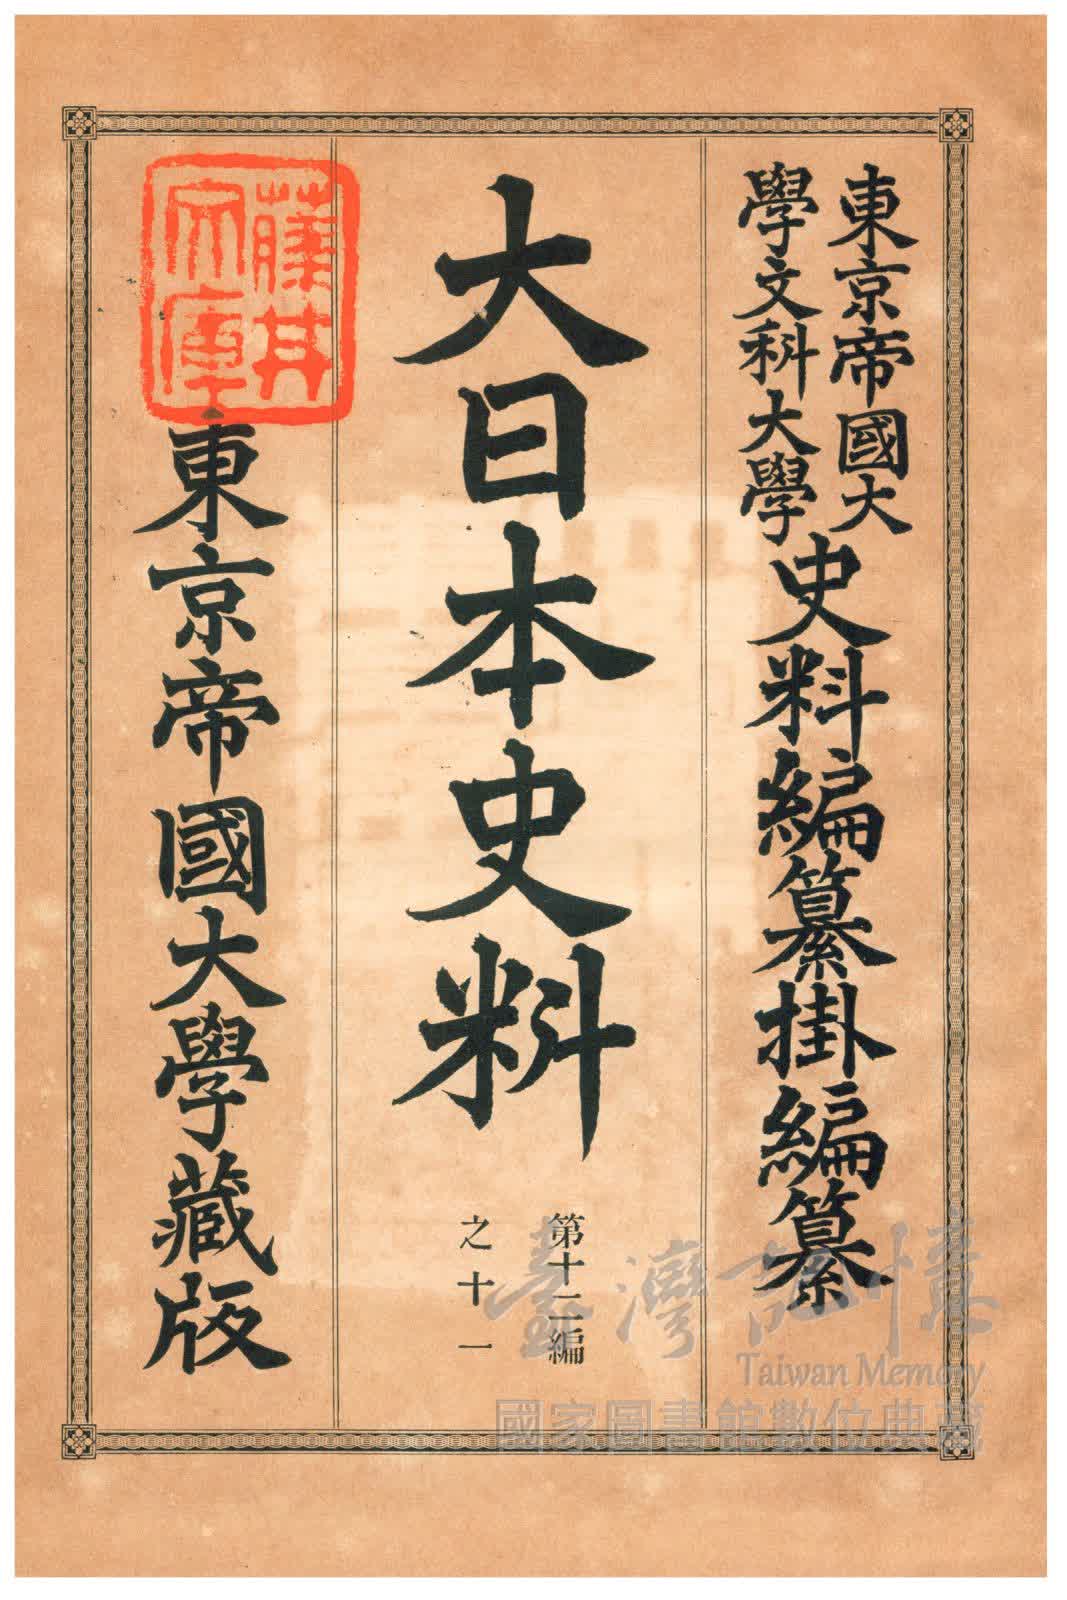 東京帝國大
學文科大學
史料編纂掛編纂
大日本史料
第十二編
之十一
藤井
文庫
東京帝國大學藏版
臺灣記憶
Taiwan Memory
國家圖書館數位典藏